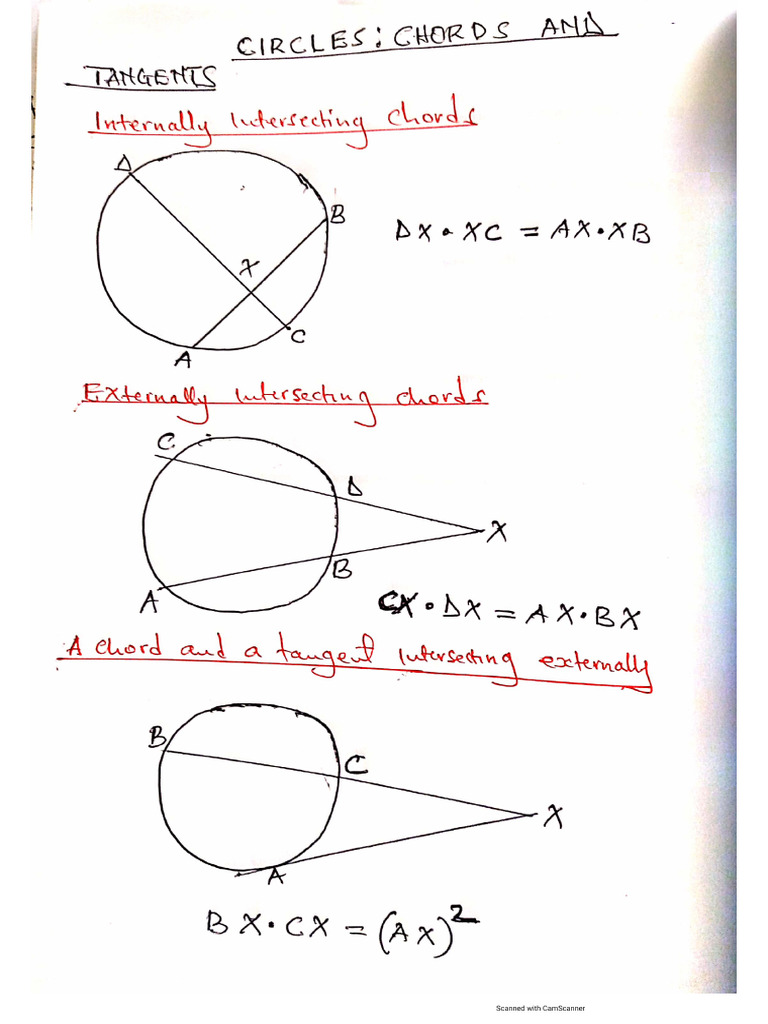 CIRCLES: CHORDS AND
TANGENTS
Internally Intersecting chords
D
B
DX • XC = AX • XB
X
C
A
Externally Intersecting chords
C
D
X
B
A
CX • DX = AX • BX
A chord and a tangent Intersecting externally
B
C
X
A
BX • CX = (AX)²
Scanned with CamScanner